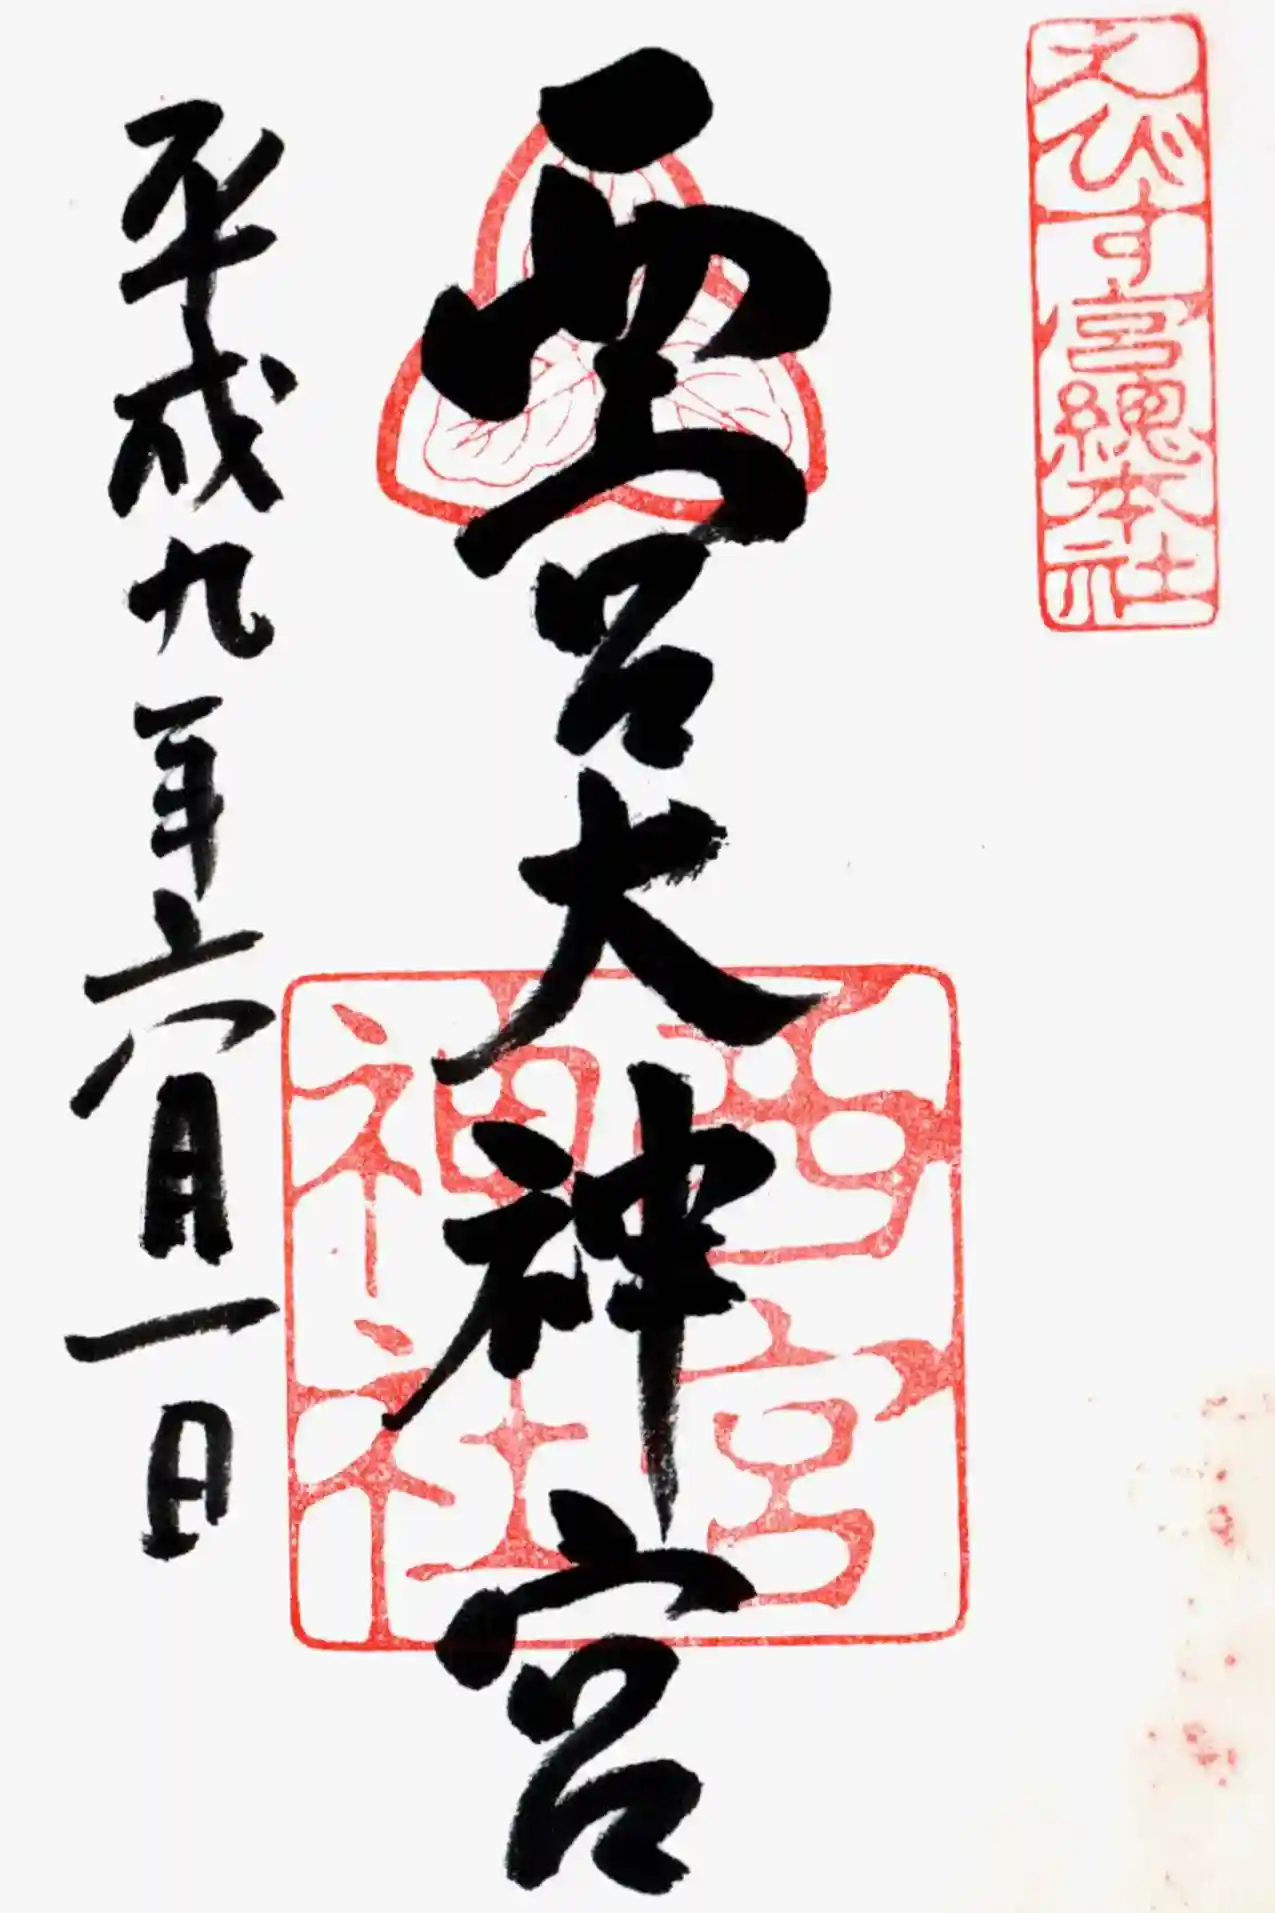 えびす宮總本社
西宮大神宮
西宮神社
平成九年六月一日